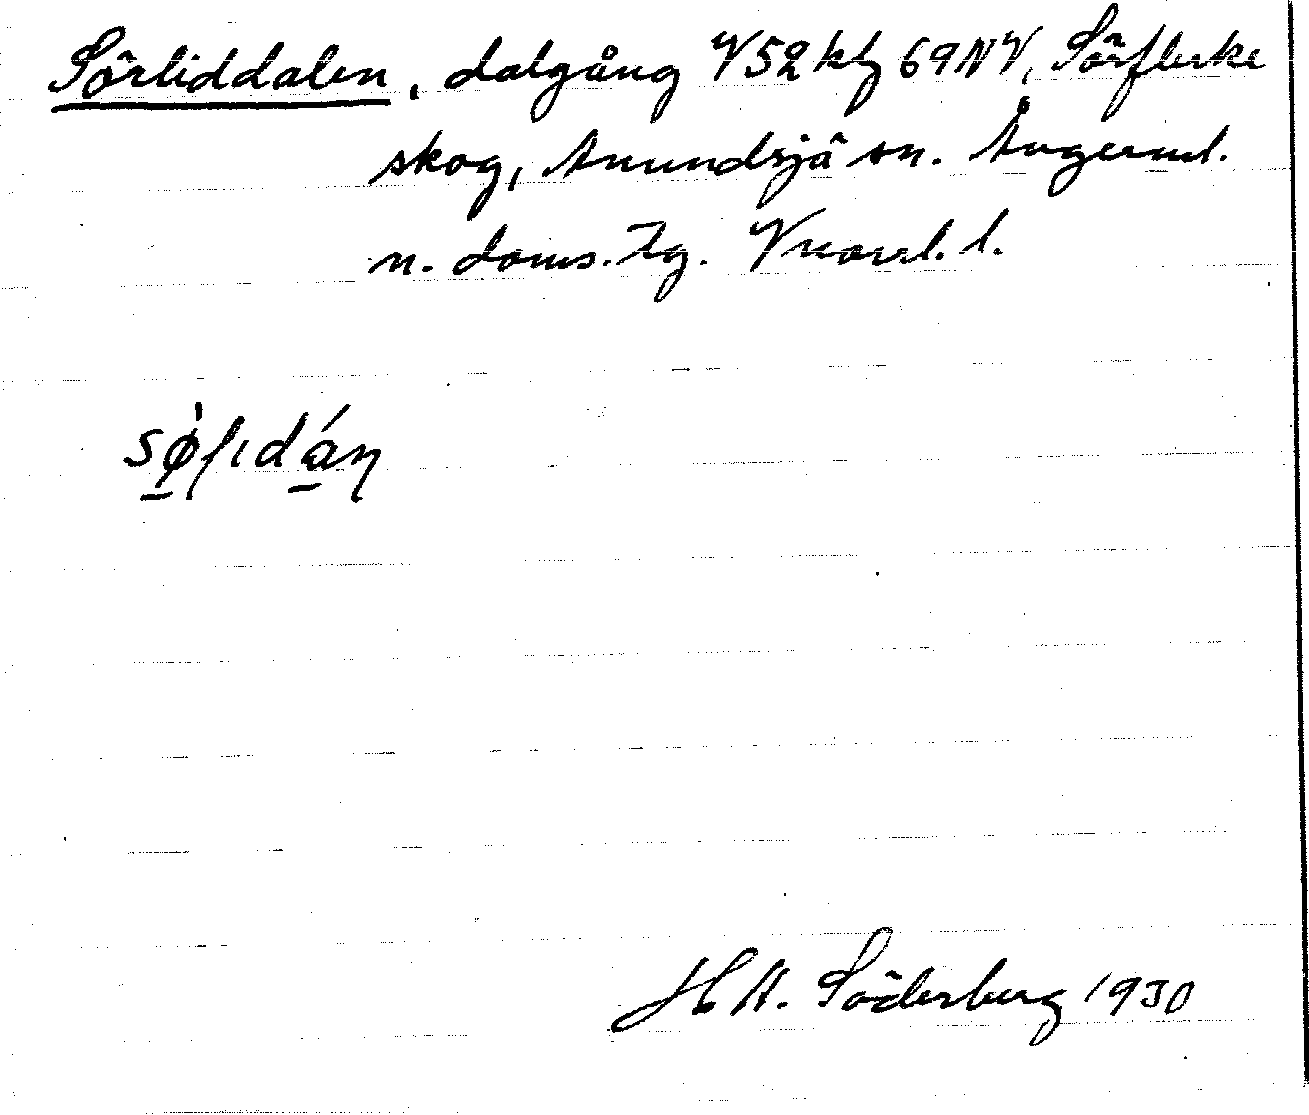 Sörliddalen, dalgång V52 kbg 69NV, Sörflerke
skog, Anundsjö sn. Ångerml.
n. doms. Tg. Vnorrl. l.
sø̀ḷıdáṇ
H A. Söderberg 1930